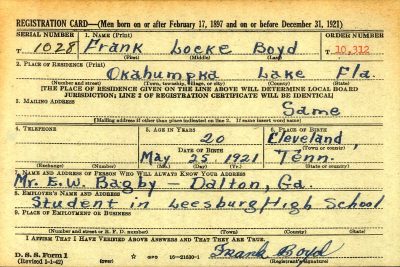 REGISTRATION CARD—(Men born on or after February 17, 1897 and on or before December 31, 1921)
SERIAL NUMBER 1. NAME (Print) ORDER NUMBER
T 1028 Frank Locke Boyd T 10,312
(First) (Middle) (Last)
2. PLACE OF RESIDENCE (Print)
Okahumpka Lake Fla.
(Number and street) (Town, township, village, or city) (County) (State)
[THE PLACE OF RESIDENCE GIVEN ON THE LINE ABOVE WILL DETERMINE LOCAL BOARD
JURISDICTION; LINE 2 OF REGISTRATION CERTIFICATE WILL BE IDENTICAL]
3. MAILING ADDRESS
Same
[Mailing address if other than place indicated on line 2. If same insert word same]
4. TELEPHONE 5. AGE IN YEARS 6. PLACE OF BIRTH
20 Cleveland
DATE OF BIRTH (Town or county)
May 25 1921 Tenn.
(Exchange) (Number) (Mo.) (Day) (Yr.) (State or country)
7. NAME AND ADDRESS OF PERSON WHO WILL ALWAYS KNOW YOUR ADDRESS
Mr. E.W. Bagby – Dalton, Ga.
8. EMPLOYER'S NAME AND ADDRESS
Student in Leesburg High School
9. PLACE OF EMPLOYMENT OR BUSINESS
(Number and street or R. F. D. number) (Town) (County) (State)
I AFFIRM THAT I HAVE VERIFIED ABOVE ANSWERS AND THAT THEY ARE TRUE.
D. S. S. Form 1
(Revised 1-1-42) (over) GPO 16—21630-1 Frank Boyd
(Registrant's signature)